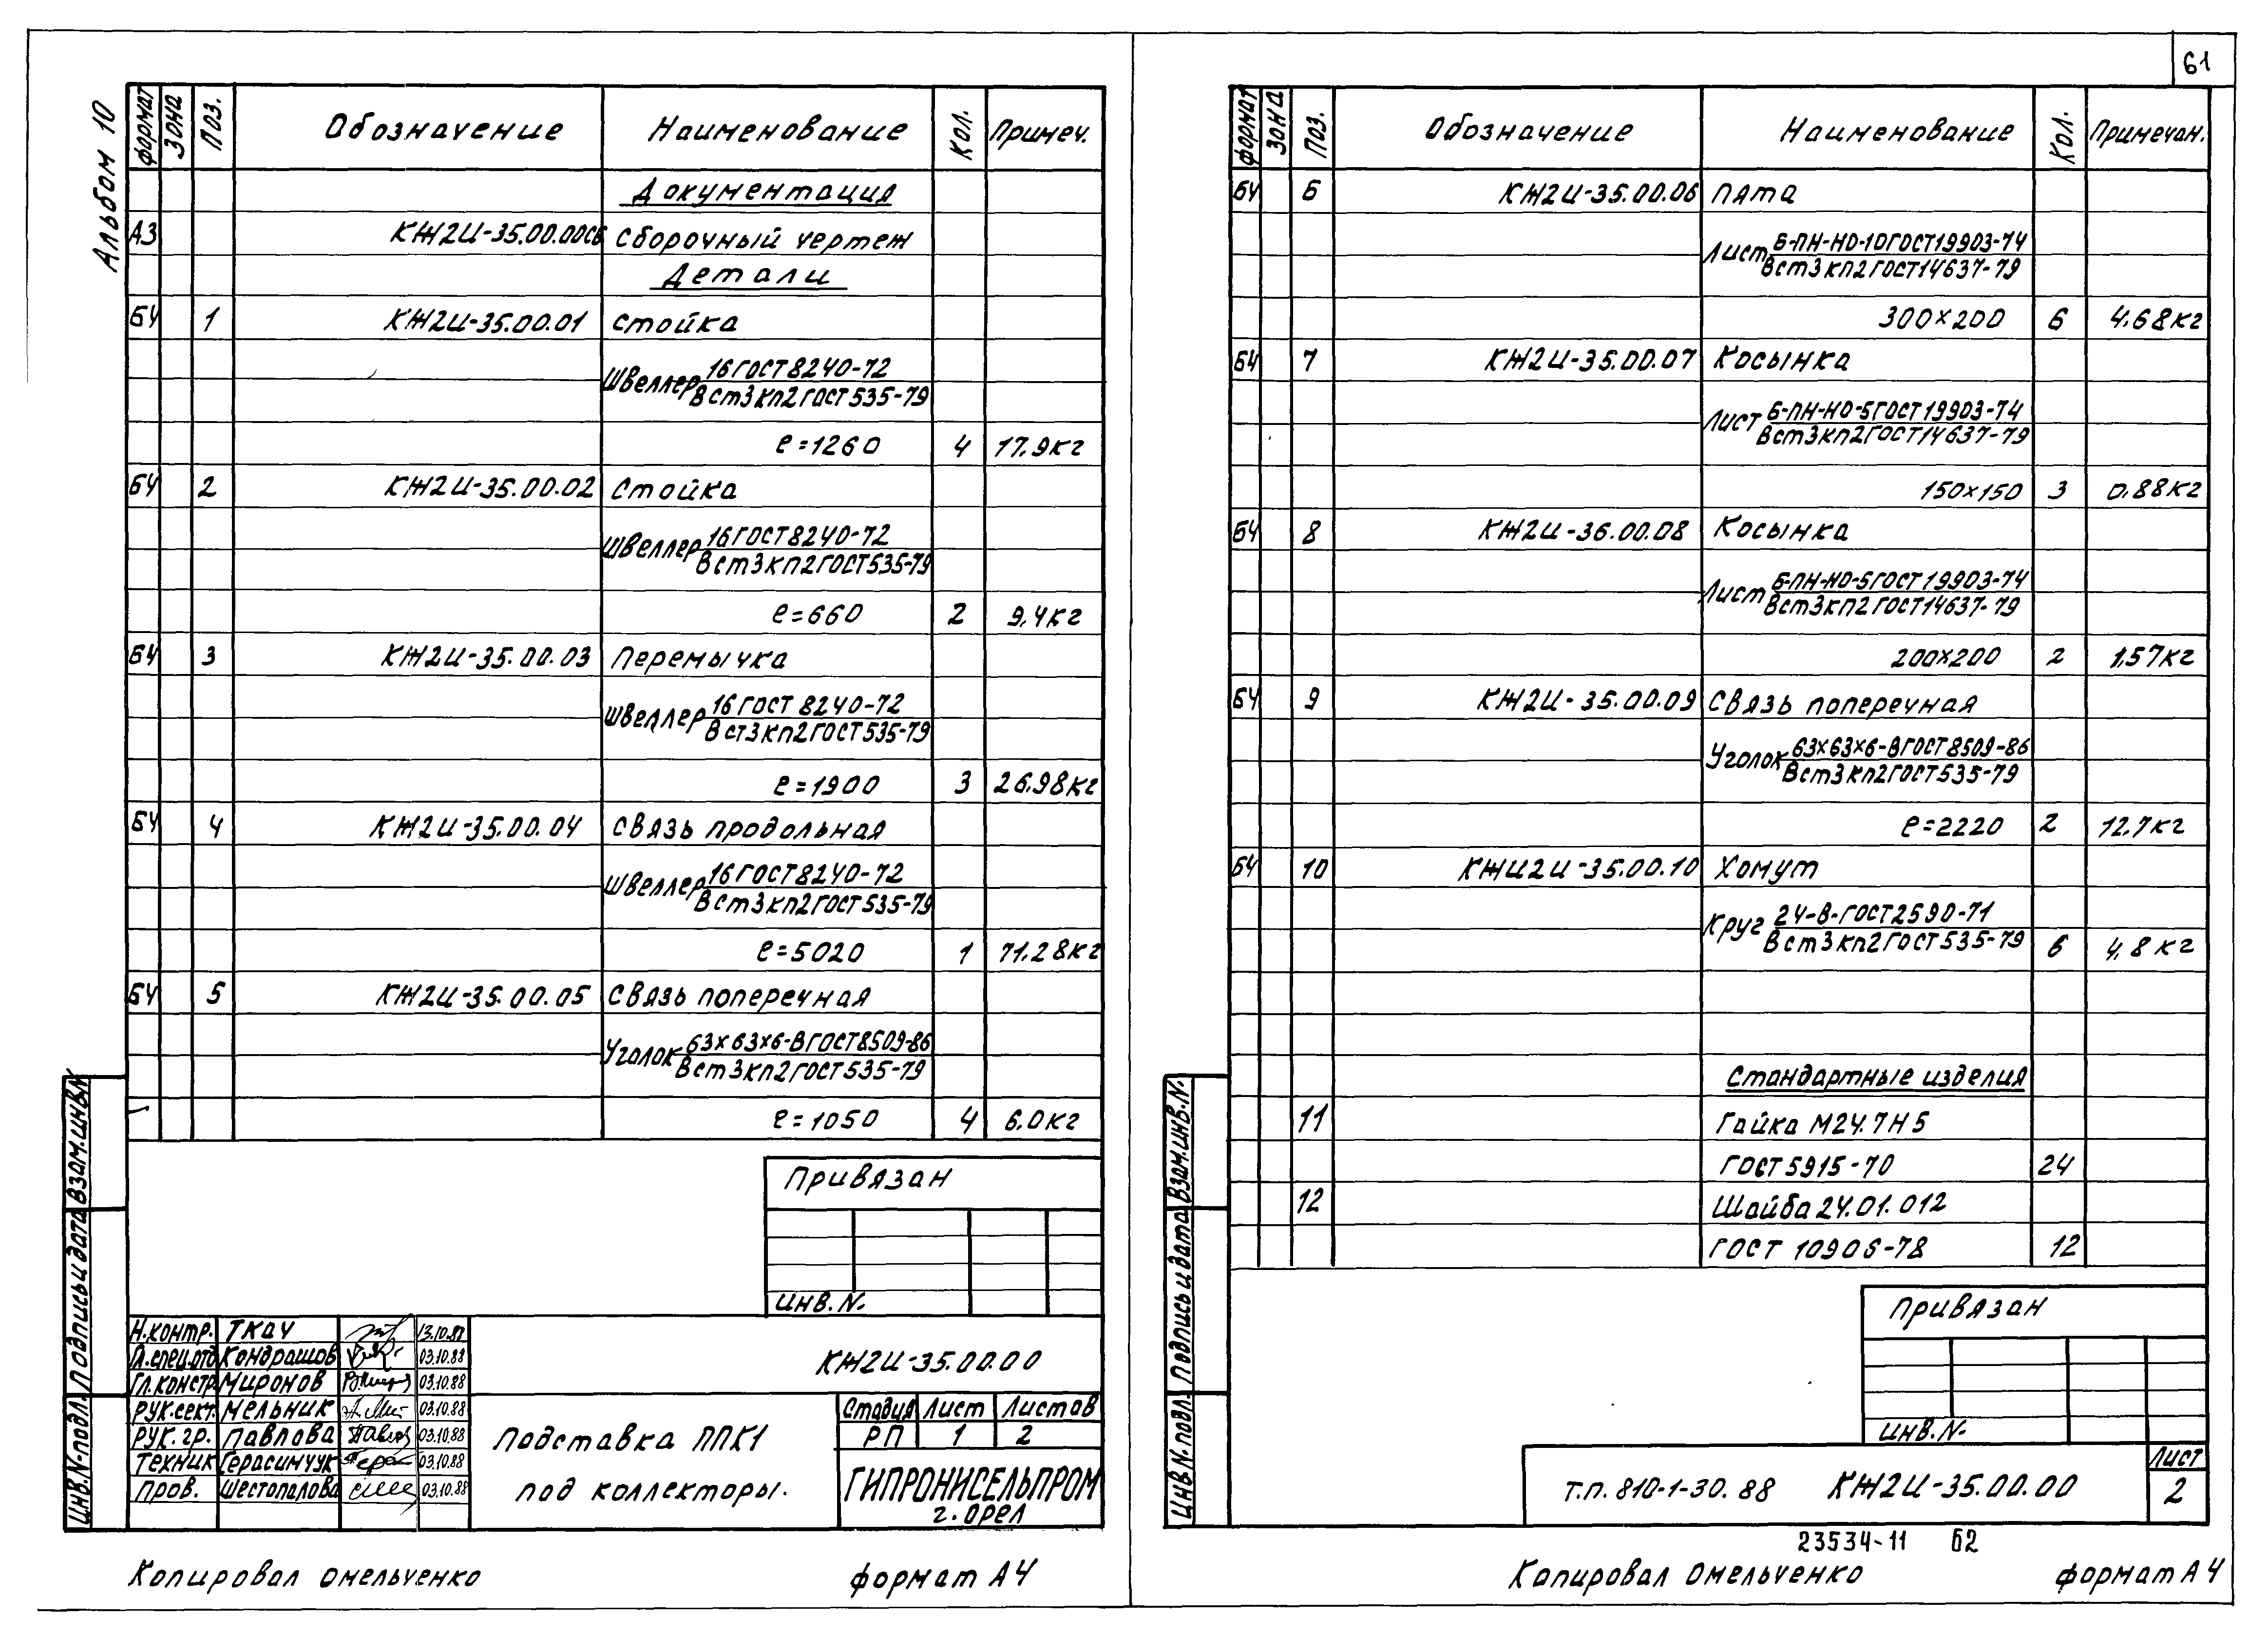 61
Альбом 10
формат Зона Поз. Обозначение Наименование Кол. Примеч.
Документация
А3 КЖ2И-35.00.00СБ Сборочный чертеж
Детали
БЧ 1 КЖ2И-35.00.01 Стойка
Швеллер 16 ГОСТ 8240-72
Вст3кп2 ГОСТ 535-79
ℓ=1260 4 17,9кг
БЧ 2 КЖ2И-35.00.02 Стойка
Швеллер 16 ГОСТ 8240-72
Вст3кп2 ГОСТ 535-79
ℓ=660 2 9,4кг
БЧ 3 КЖ2И-35.00.03 Перемычка
Швеллер 16 ГОСТ 8240-72
Вст3кп2 ГОСТ 535-79
ℓ=1900 3 26,98кг
БЧ 4 КЖ2И-35.00.04 Связь продольная
Швеллер 16 ГОСТ 8240-72
Вст3кп2 ГОСТ 535-79
ℓ=5020 1 71,28кг
БЧ 5 КЖ2И-35.00.05 Связь поперечная
Уголок 63х63х6-В ГОСТ 8509-86
Вст3кп2 ГОСТ 535-79
ℓ=1050 4 6,0кг
Привязан
Инв.N.
Инв.N.подл. Подпись и дата Взам.инв.N
Н.контр. Ткач 13.10.88
Гл.спец.отд Кондрашов 03.10.88
Гл.констр. Миронов 03.10.88
Рук.сект. Мельник 03.10.88
Рук.гр. Павлова 03.10.88
Техник Герасимчук 03.10.88
Пров. Шестопалова 03.10.88
КЖ2И-35.00.00
Подставка ППК1
под коллекторы.
Стадия Лист Листов
РП 1 2
ГИПРОНИСЕЛЬПРОМ
г. Орел
Копировал Омельченко формат А4
формат Зона Поз. Обозначение Наименование Кол. Примечан.
БЧ 6 КЖ2И-35.00.06 Пята
Лист Б-ПН-НО-10 ГОСТ 19903-74
Вст3кп2 ГОСТ 14637-79
300×200 6 4,68кг
БЧ 7 КЖ2И-35.00.07 Косынка
Лист Б-ПН-НО-5 ГОСТ 19903-74
Вст3кп2 ГОСТ 14637-79
150×150 3 0,88кг
БЧ 8 КЖ2И-36.00.08 Косынка
Лист Б-ПН-НО-5 ГОСТ 19903-74
Вст3кп2 ГОСТ 14637-79
200×200 2 1,57кг
БЧ 9 КЖ2И-35.00.09 Связь поперечная
Уголок 63х63х6-В ГОСТ 8509-86
Вст3кп2 ГОСТ 535-79
ℓ=2220 2 12,7кг
БЧ 10 КЖИ2И-35.00.10 Хомут
Круг 24-В-ГОСТ 2590-71
Вст3кп2 ГОСТ 535-79 6 4,8кг
Стандартные изделия
11 Гайка М24.7Н5
ГОСТ 5915-70 24
12 Шайба 24.01.012
ГОСТ 10906-78 12
Привязан
Инв.N.
Инв.N.подл. Подпись и дата Взам.инв.N.
Т.п. 810-1-30.88 КЖ2И-35.00.00
Лист
2
23534-11 62
Копировал Омельченко формат А4